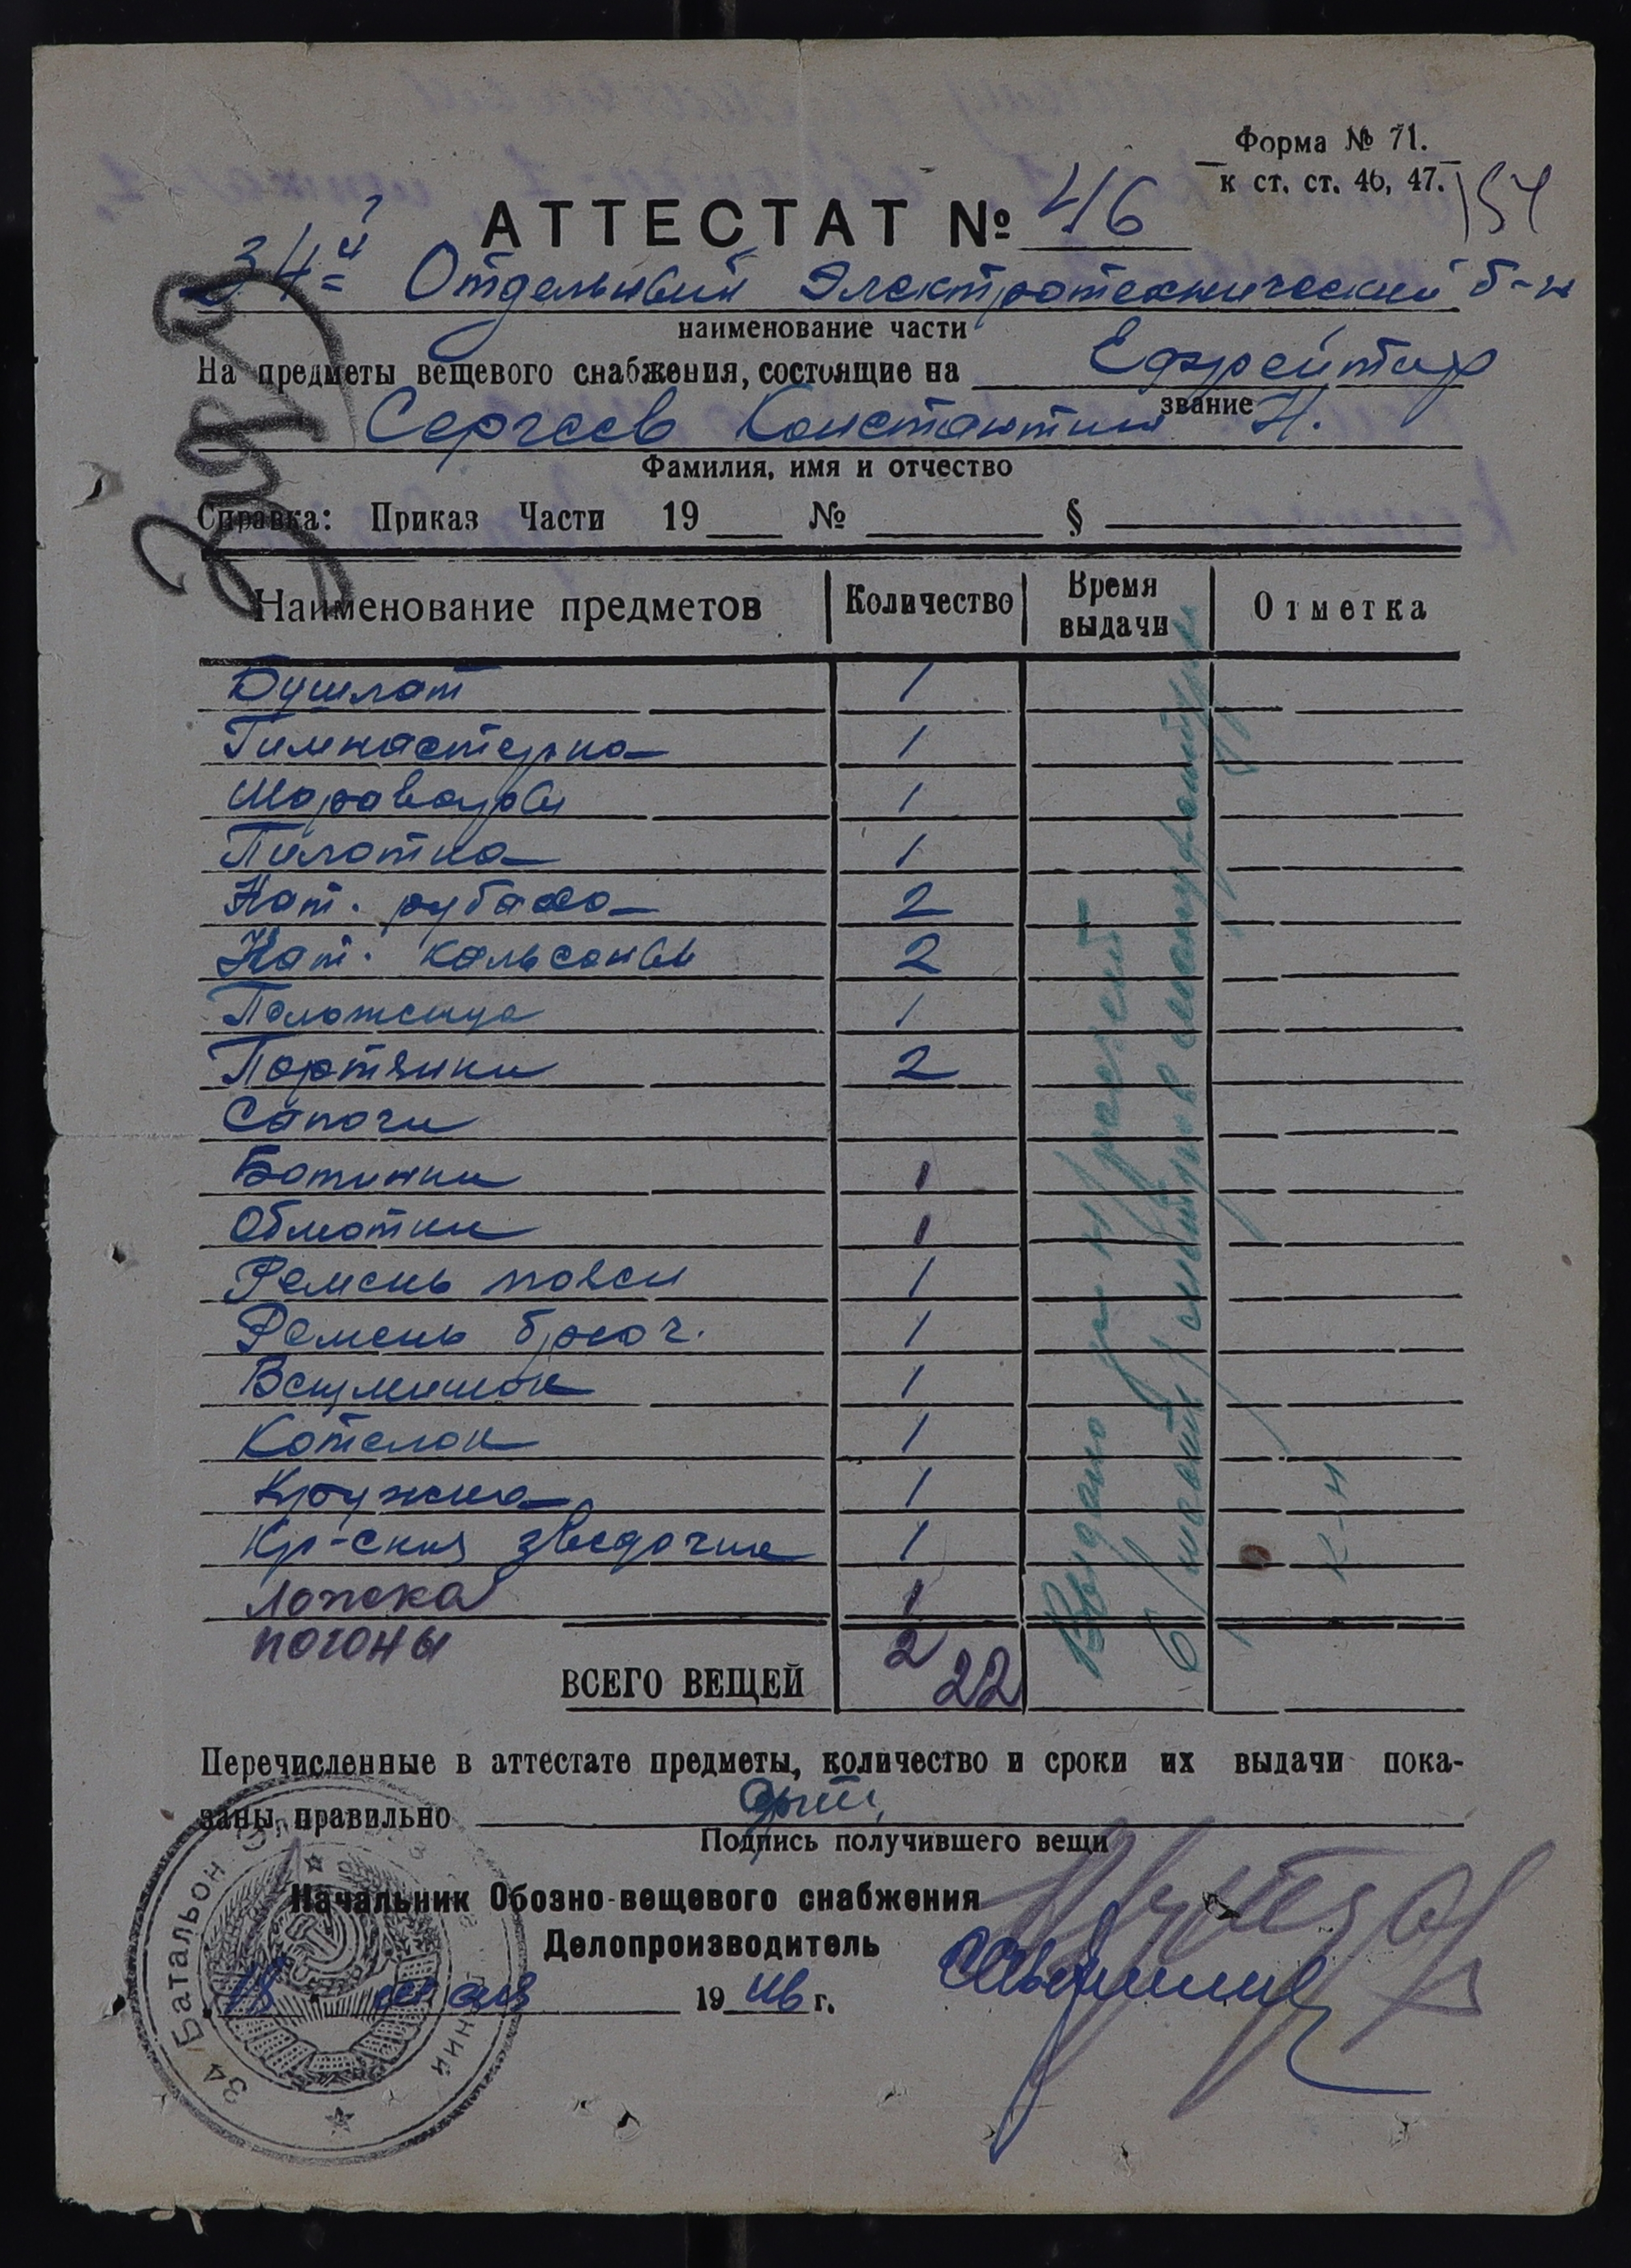 Форма № 71.
к ст. ст. 46, 47.
154
АТТЕСТАТ № 46
34й Отдельный Электротехнический б-н
наименование части
На предметы вещевого снабжения, состоящие на Ефрейтор
звание
Сергеев Константин Н.
Фамилия, имя и отчество
Справка: Приказ Части 19 № §
Наименование предметов Количество Время выдачи Отметка
Бушлат 1
Гимнастерка 1
Шаровары 1
Пилотка 1
Нат. рубаха 2
Нат. кальсоны 2
Полотенца 1
Портянки 2
Сапоги
Ботинки 1
Обмотки 1
Ремень поясн 1
Ремень брюч. 1
Вещмешок 1
Котелок 1
Кружка 1
Кр-ская звездочка 1
Ложка 1
погоны 2
ВСЕГО ВЕЩЕЙ 22
Выдано
Перечисленные в аттестате предметы, количество и сроки их выдачи пока-
заны правильно
Подпись получившего вещи
Начальник Обозно-вещевого снабжения
Делопроизводитель
18 мая 1946 г.
34 Батальон